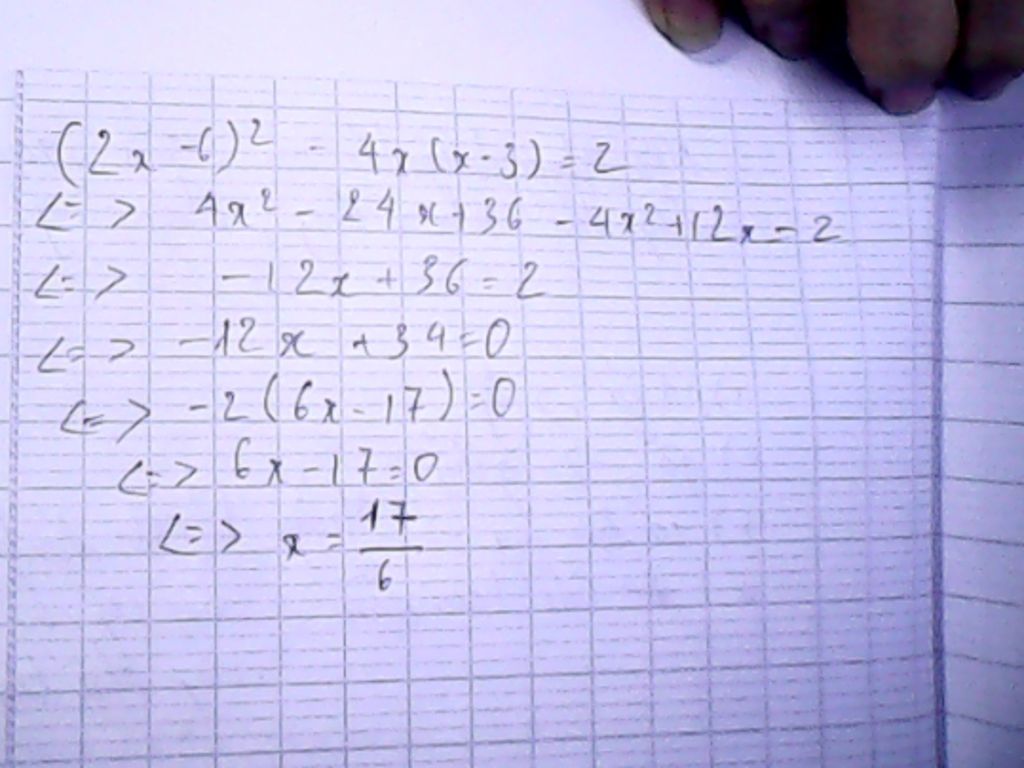 (2x - 6)² - 4x(x - 3) = 2
<=> 4x² - 24x + 36 - 4x² + 12x = 2
<=> -12x + 36 = 2
<=> -12x + 34 = 0
<=> -2(6x - 17) = 0
<=> 6x - 17 = 0
<=> x = 17/6